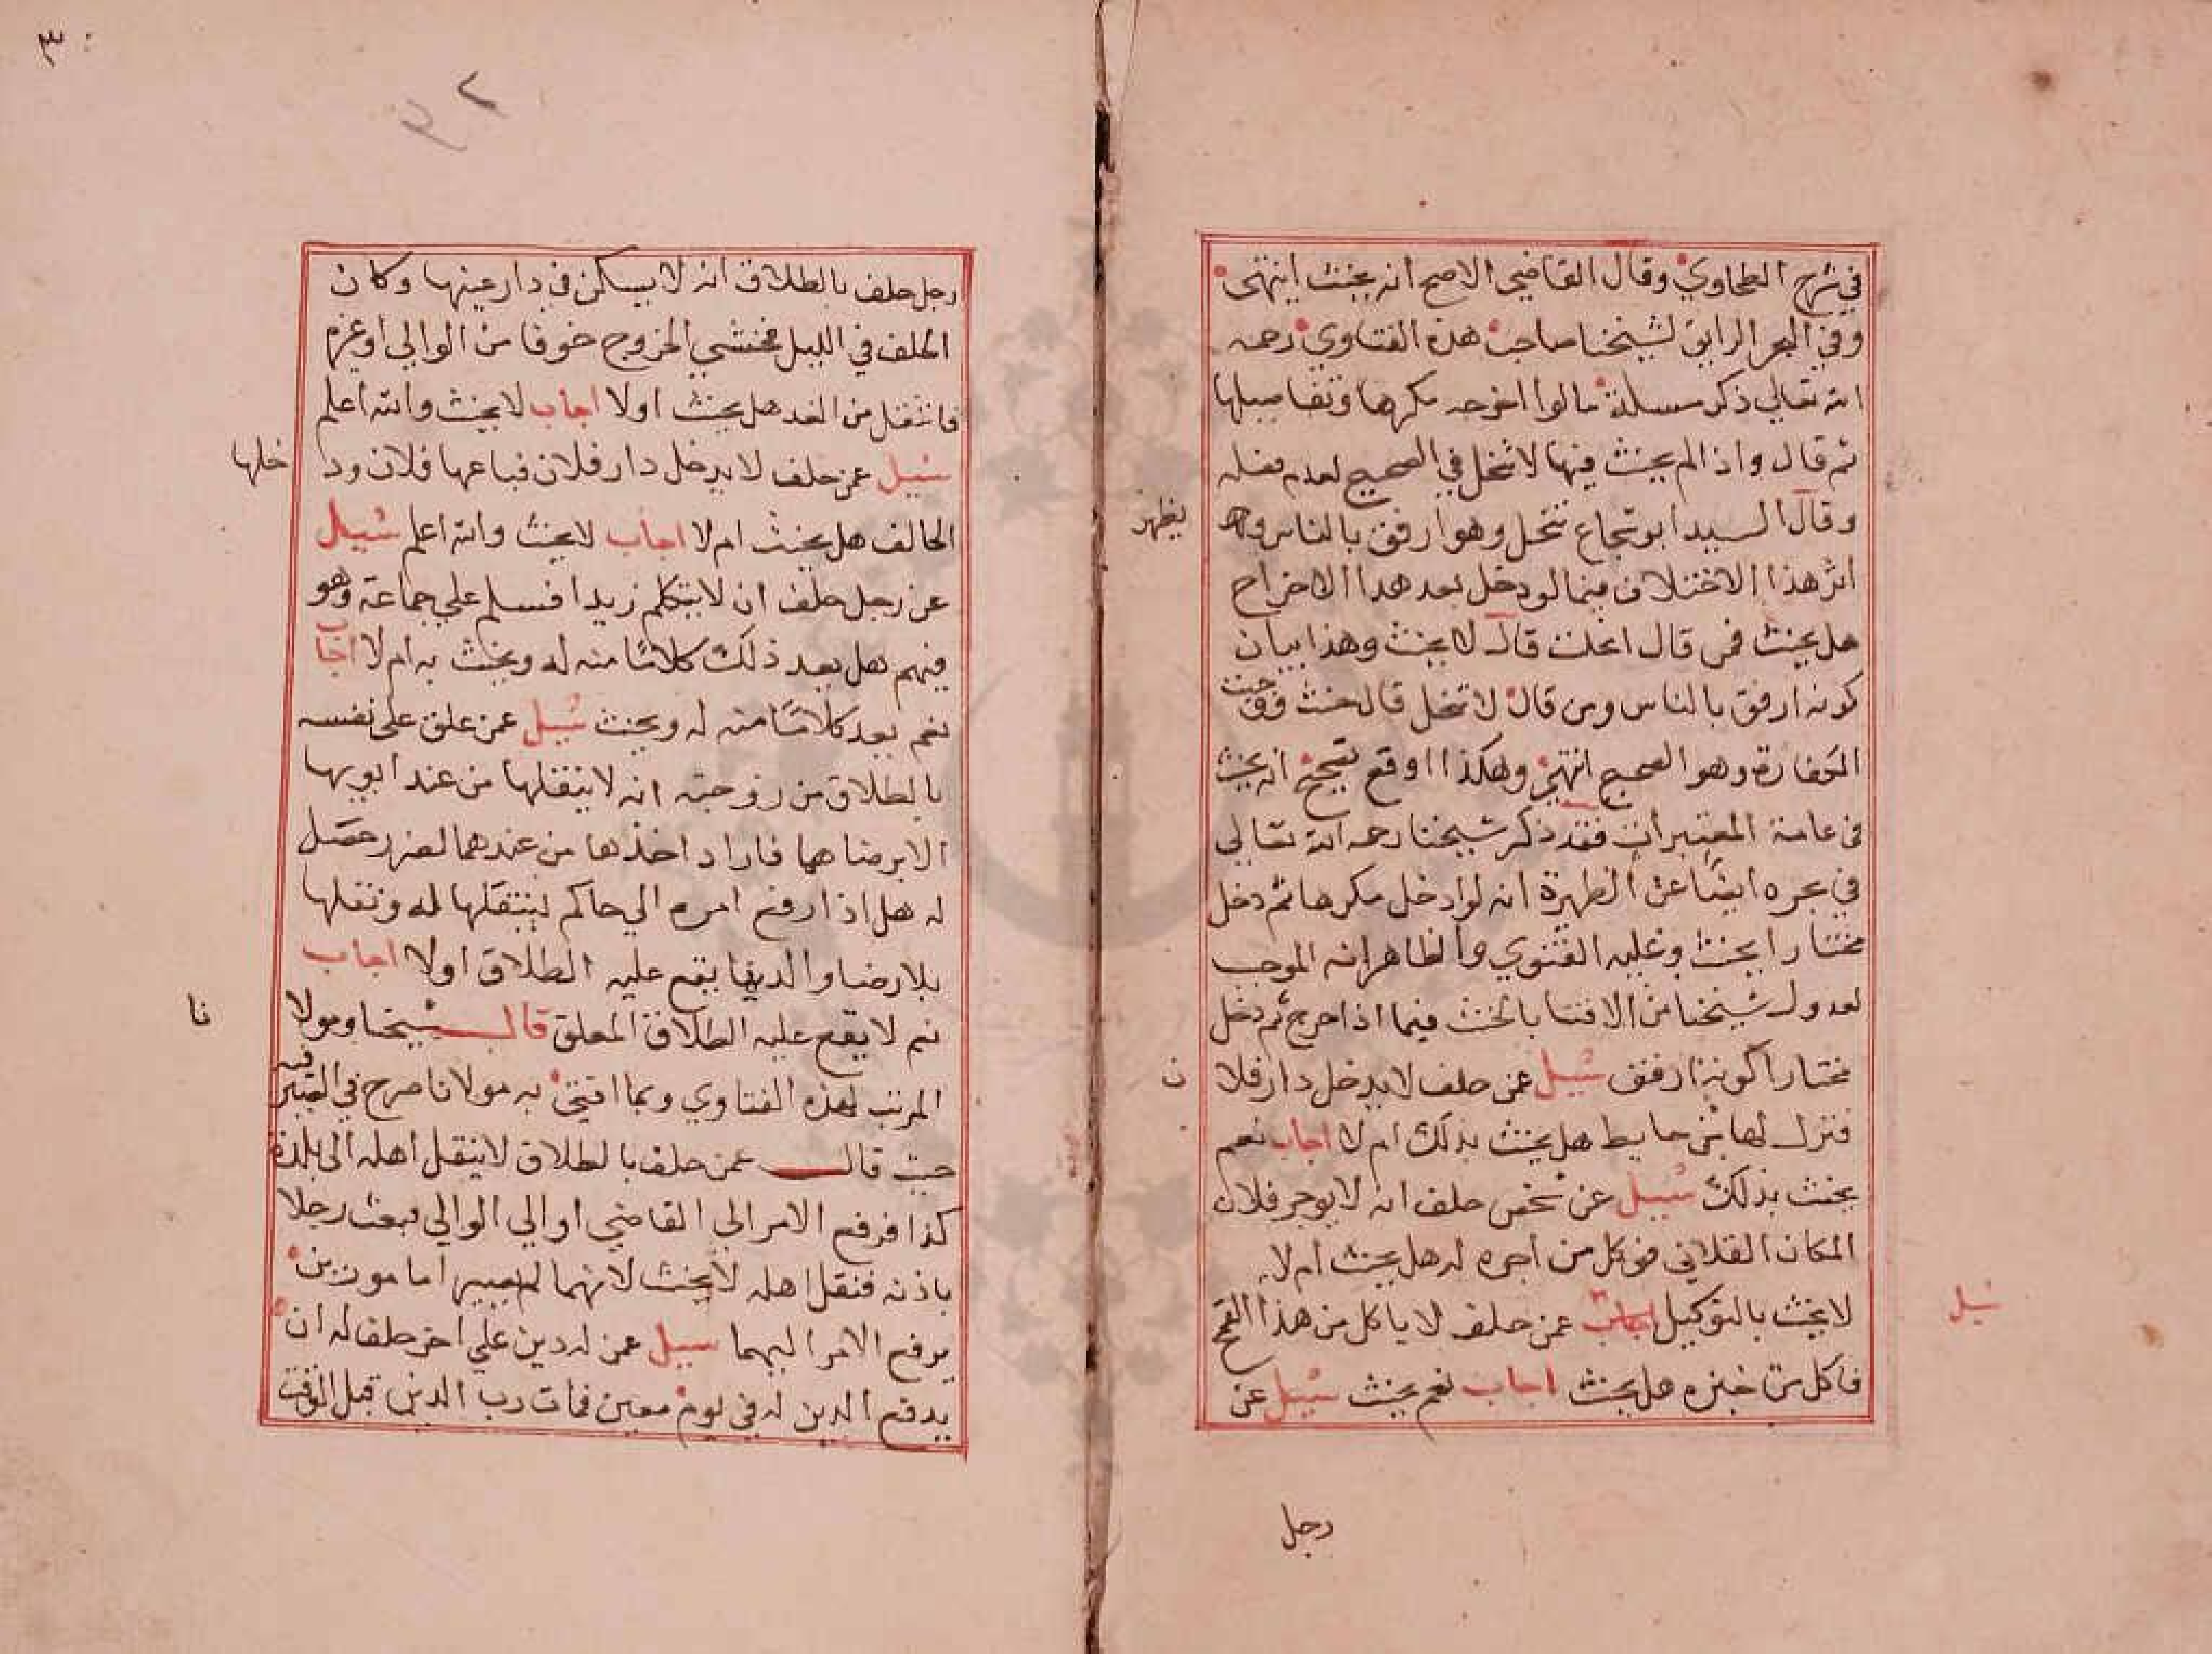 في شرح الطحاوي وقال القاضي الاصح انه يحنث انتهى
وفي البحر الرايق لشيخنا صاحب هذه الفتاوي رحمه
الله تعالي ذكر مسيلة ما لو اخرجه مكرها وتفاصيلها
ثم قال واذا لم يحنث فيها لا تنحل في الصحيح لعدم فعله
وقال السيد ابو شجاع تنحل وهو ارفق بالناس و يظهر
اثر هذا الاختلاف فيما لو دخل بعد هذا الاخراج
هل يحنث فمن قال انحلت قال لا يحنث وهذا بيان
كونه ارفق بالناس ومن قال لا تنحل قال حنث ووجبت
الكفارة وهو الصحيح انتهى وهكذا اوقع تصحيح انه يحنث
في عامة المعتبرات فقد ذكر شيخنا رحمه الله تعالي
في بحره ايضا عن الظهيرة انه لو ادخل مكرها ثم دخل
مختارا يحنث وعليه الفتوي والظاهر انه الموجب
لعدول شيخنا من الافتا بالحنث فيما اذا اخرج ثم دخل
مختارا كونه ارفق سيل عمن حلف لا يدخل دار فلا ن
فنزل لها من حايط هل يحنث بذلك ام لا اجاب نعم
يحنث بذلك سيل عن شخص حلف انه لا يوجر فلان
المكان الفلاني فوكل من اجره له هل يحنث ام لا
لا يحنث بالتوكيل اجاب عمن حلف لا ياكل من هذا القمح
سيل
فاكل من خبزه هل يحنث اجاب نعم يحنث سيل عن
رجل
٣٠
رجل حلف بالطلاق انه لا يسكن في دار عينها وكان
الحلف في الليل فخشي الخروج خوفا من الوالي او غيره
فانتقل من الغد هل يحنث اولا اجاب لا يحنث والله اعلم
سيل عمن حلف لا يدخل دار فلان فباعها فلان ود خلها
الحالف هل يحنث ام لا اجاب لا يحنث والله اعلم سيل
عن رجل حلف ان لا يتكلم زيدا فسلم علي جماعة وهو
فيهم هل يعد ذلك كلاما منه له ويحنث به ام لا اجاب
نعم يعد كلاما منه له ويحنث سيل عمن علق على نفسه
بالطلاق من زوجته انه لا ينقلها من عند ابويها
الا برضاهما فاراد اخذها من عندهما لضرر حصل
له هل اذا رفع امره الي حاكم لينقلها له ونقلها
بلا رضا والديها يقع عليه الطلاق اولا اجاب
نعم لا يقع عليه الطلاق المعلق قال شيخنا ومولا نا
المرتب لهذه الفتاوي وبما افتى به مولانا صرح في القنية
حيث قال عمن حلف بالطلاق لا ينقل اهله الى بلدة
كذا فرفع الامر الي القاضي او الي الوالي فبعث رجلا
باذنه فنقل اهله لا يحنث لانهما لم يصيرا مامورين
برفع الامر اليهما سيل عمن له دين علي اخر حلف له ان
يدفع الدين له في يوم معين فمات رب الدين قبل الوقت